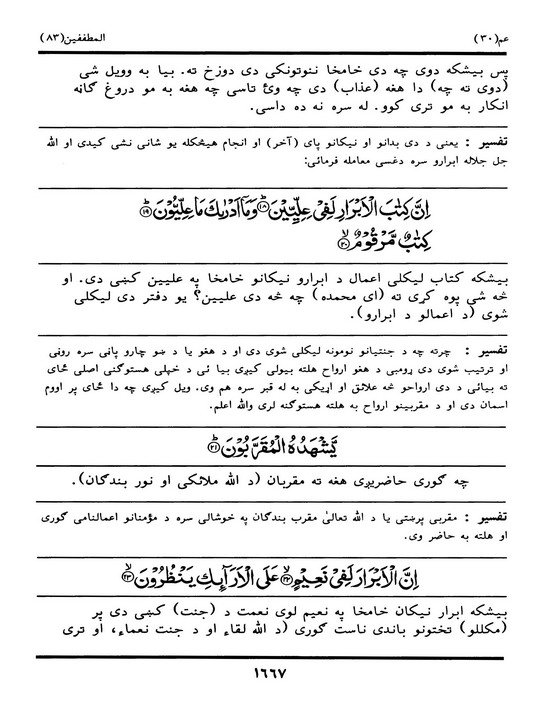 عم (۳۰) المطففين (۸۳)
پس بیشکه دوی چه دی خامخا ننوتونکی دی دوزخ ته. بیا به وویل شی
(دوی ته چه) دا هغه (عذاب) دی چه وئ تاسی چه هغه به مو دروغ گاڼه
انکار به مو تری کوو. له سره نه ده داسی.
تفسیر : یعنی د دی بدانو او نیکانو پای (آخر) او انجام هیڅکله یو شانی نشی کیدی او الله
جل جلاله ابرارو سره دغسی معامله فرمائی:
اِنَّ كِتٰبَ الْاَبْرَارِ لَفِیْ عِلِّیِّیْنَ ﴿۱۸﴾ وَمَاۤ اَدْرٰىكَ مَا عِلِّیُّوْنَ ﴿۱۹﴾
كِتٰبٌ مَّرْقُوْمٌ ﴿۲۰﴾
بیشکه کتاب لیکلی اعمال د ابرارو نیکانو خامخا په علیین کښی دی. او
څه شی پوه کړی ته (ای محمده) چه څه دی علیین؟ یو دفتر دی لیکلی
شوی (د اعمالو د ابرارو).
تفسیر : چرته چه د جنتیانو نومونه لیکلی شوی دی او د هغو یا د ښو چارو پاڼی سره روڼی
او ترتیب شوی دی ړومبی د هغو ارواح هلته بیولی کیږی بیا ئی د خپلی هستوگنی اصلی ځای
ته بیائی د دی ارواحو څه علائق او اړیکی به له قبر سره هم وی. ویل کیږی چه دا ځای پر اووم
اسمان دی او د مقربینو ارواح به هلته هستوگنه لری والله اعلم.
یَّشْهَدُهُ الْمُقَرَّبُوْنَ ﴿۲۱﴾
چه گوری حاضریږی هغه ته مقربان (د الله ملائکی او نور بندگان).
تفسیر : مقربی پرښتی یا د الله تعالیٰ مقرب بندگان په خوشالی سره د مؤمنانو اعمالنامی گوری
او هلته به حاضر وی.
اِنَّ الْاَبْرَارَ لَفِیْ نَعِیْمٍ ﴿۲۲﴾ عَلَی الْاَرَآئِكِ یَنْظُرُوْنَ ﴿۲۳﴾
بیشکه ابرار نیکان خامخا په نعیم لوی نعمت د (جنت) کښی دی پر
(مکللو) تختونو باندی ناست گوری (د الله لقاء او د جنت نعماء، او تری
۱۶۶۷